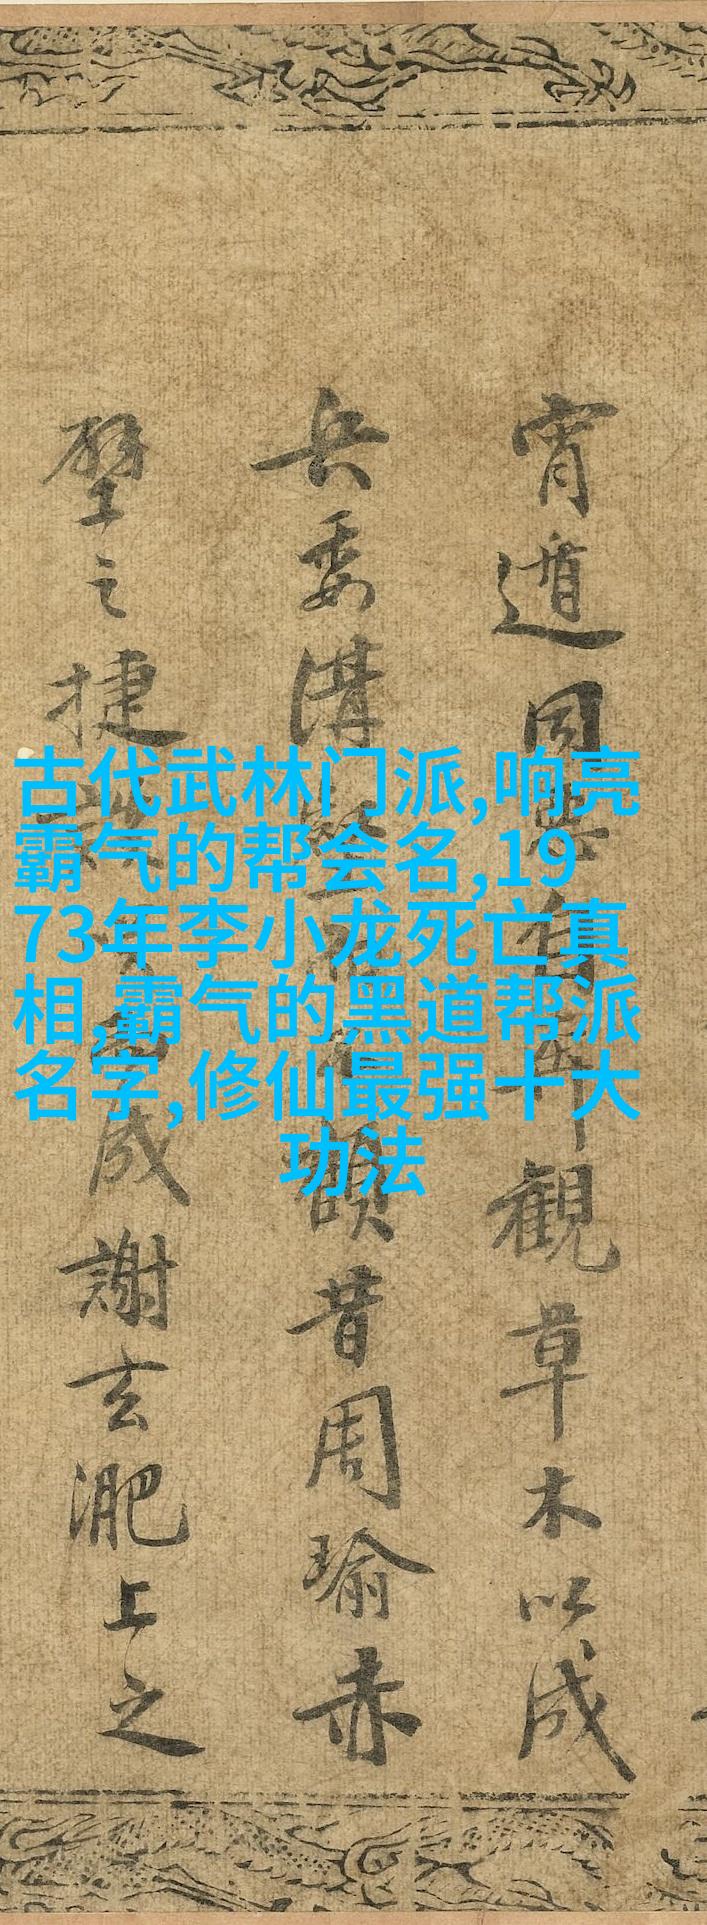 古代武林门派,响亮
霸气的帮会名,19
73年李小龙死亡真
相,霸气的黑道帮派
名字,修仙最强十大
功法
宵遁同惡自奔觀草木以成
兵委溝壑而不顧昔周瑜赤
壁之捷談笑而成謝玄淝上之